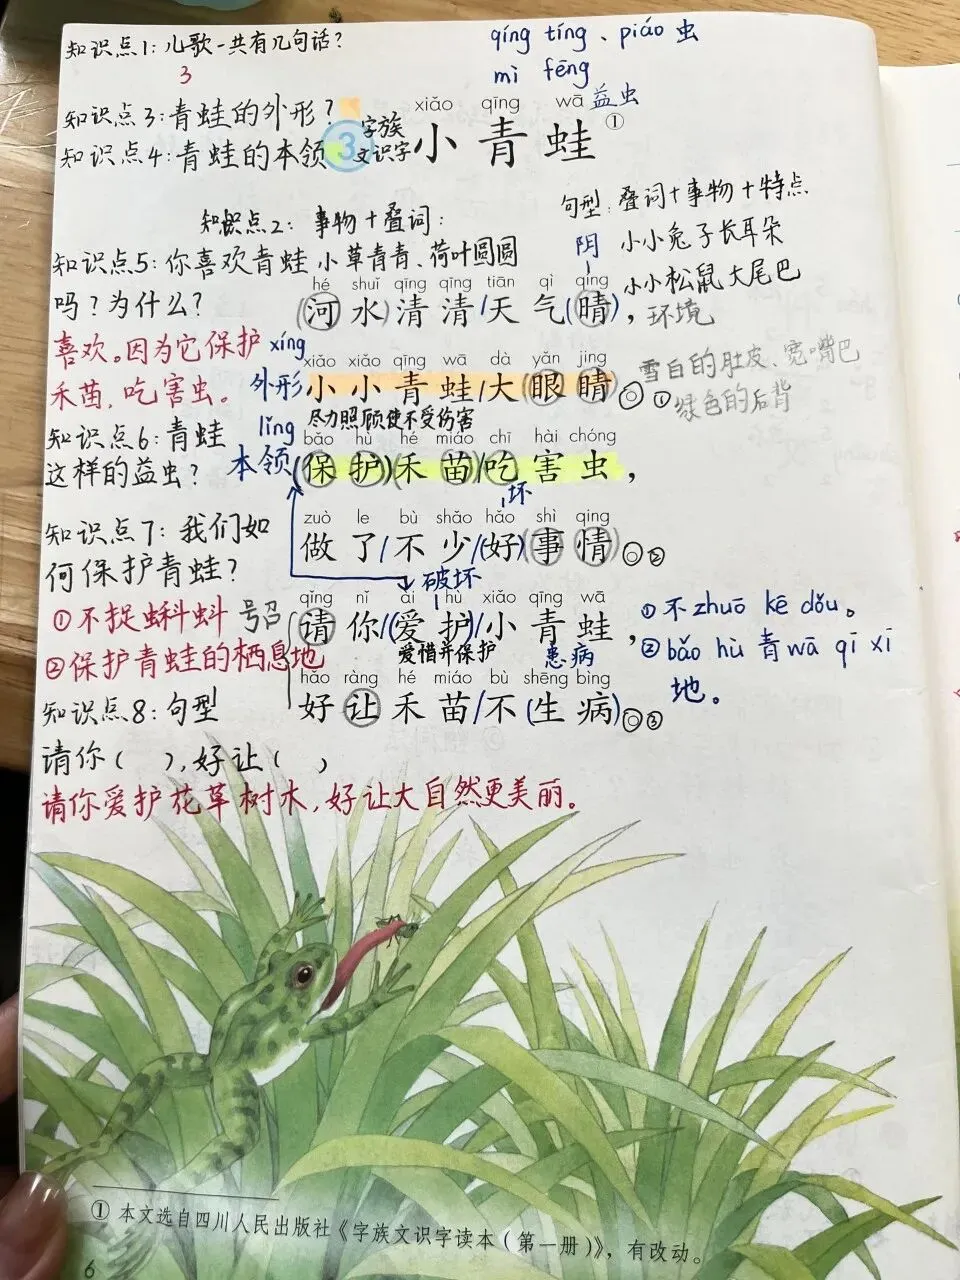 知识点1: 儿歌一共有几句话?
3
qíng tíng、piáo 虫
mì fēng
益虫
知识点3:青蛙的外形?
知识点4:青蛙的本领
3
字族
文识字
xiǎo qīng wā
小青蛙①
知识点2: 事物+叠词:
小草青青、荷叶圆圆
句型: 叠词+事物+特点
小小兔子长耳朵
小小松鼠大尾巴
知识点5:你喜欢青蛙
吗?为什么?
喜欢。因为它保护
禾苗,吃害虫。
阴
hé shuǐ qīng qīng tiān qì qíng
(河水)清清/天气(晴),
环境
xíng
外形
xiǎo xiǎo qīng wā dà yǎn jing
小小青蛙/大(眼睛)。①
雪白的肚皮、宽嘴巴
绿色的后背
尽力照顾使不受伤害
知识点6:青蛙
这样的益虫?
lǐng
本领
bǎo hù hé miáo chī hài chóng
(保护)(禾苗)吃害虫,
坏
知识点7:我们如
何保护青蛙?
①不捉蝌蚪
②保护青蛙的栖息地
zuò le bù shǎo hǎo shì qing
做了/不少/(好)(事情)。②
破坏
号召
qǐng nǐ ài hù xiǎo qīng wā
请你/(爱护)/小青蛙,
爱惜并保护
患病
①不zhuō kē dǒu。
②bǎo hù 青wā qī xī
地。
hǎo ràng hé miáo bù shēng bìng
好让禾苗/不(生病)。③
知识点8:句型
请你( ),好让( )
请你爱护花草树木,好让大自然更美丽。
① 本文选自四川人民出版社《字族文识字读本(第一册)》,有改动。
6